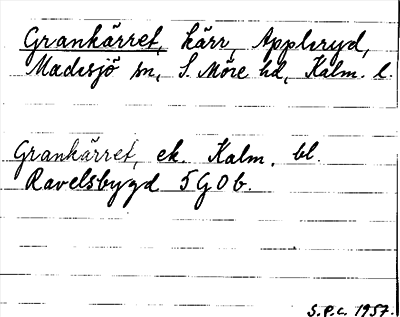 Grankärret, kärr, Appleryd,
Madesjö sn, S. Möre hd, Kalm. l.
Grankärret, ek. Kalm. bl.
Ravelsbygd 5G0b.
S.P.C. 1957.